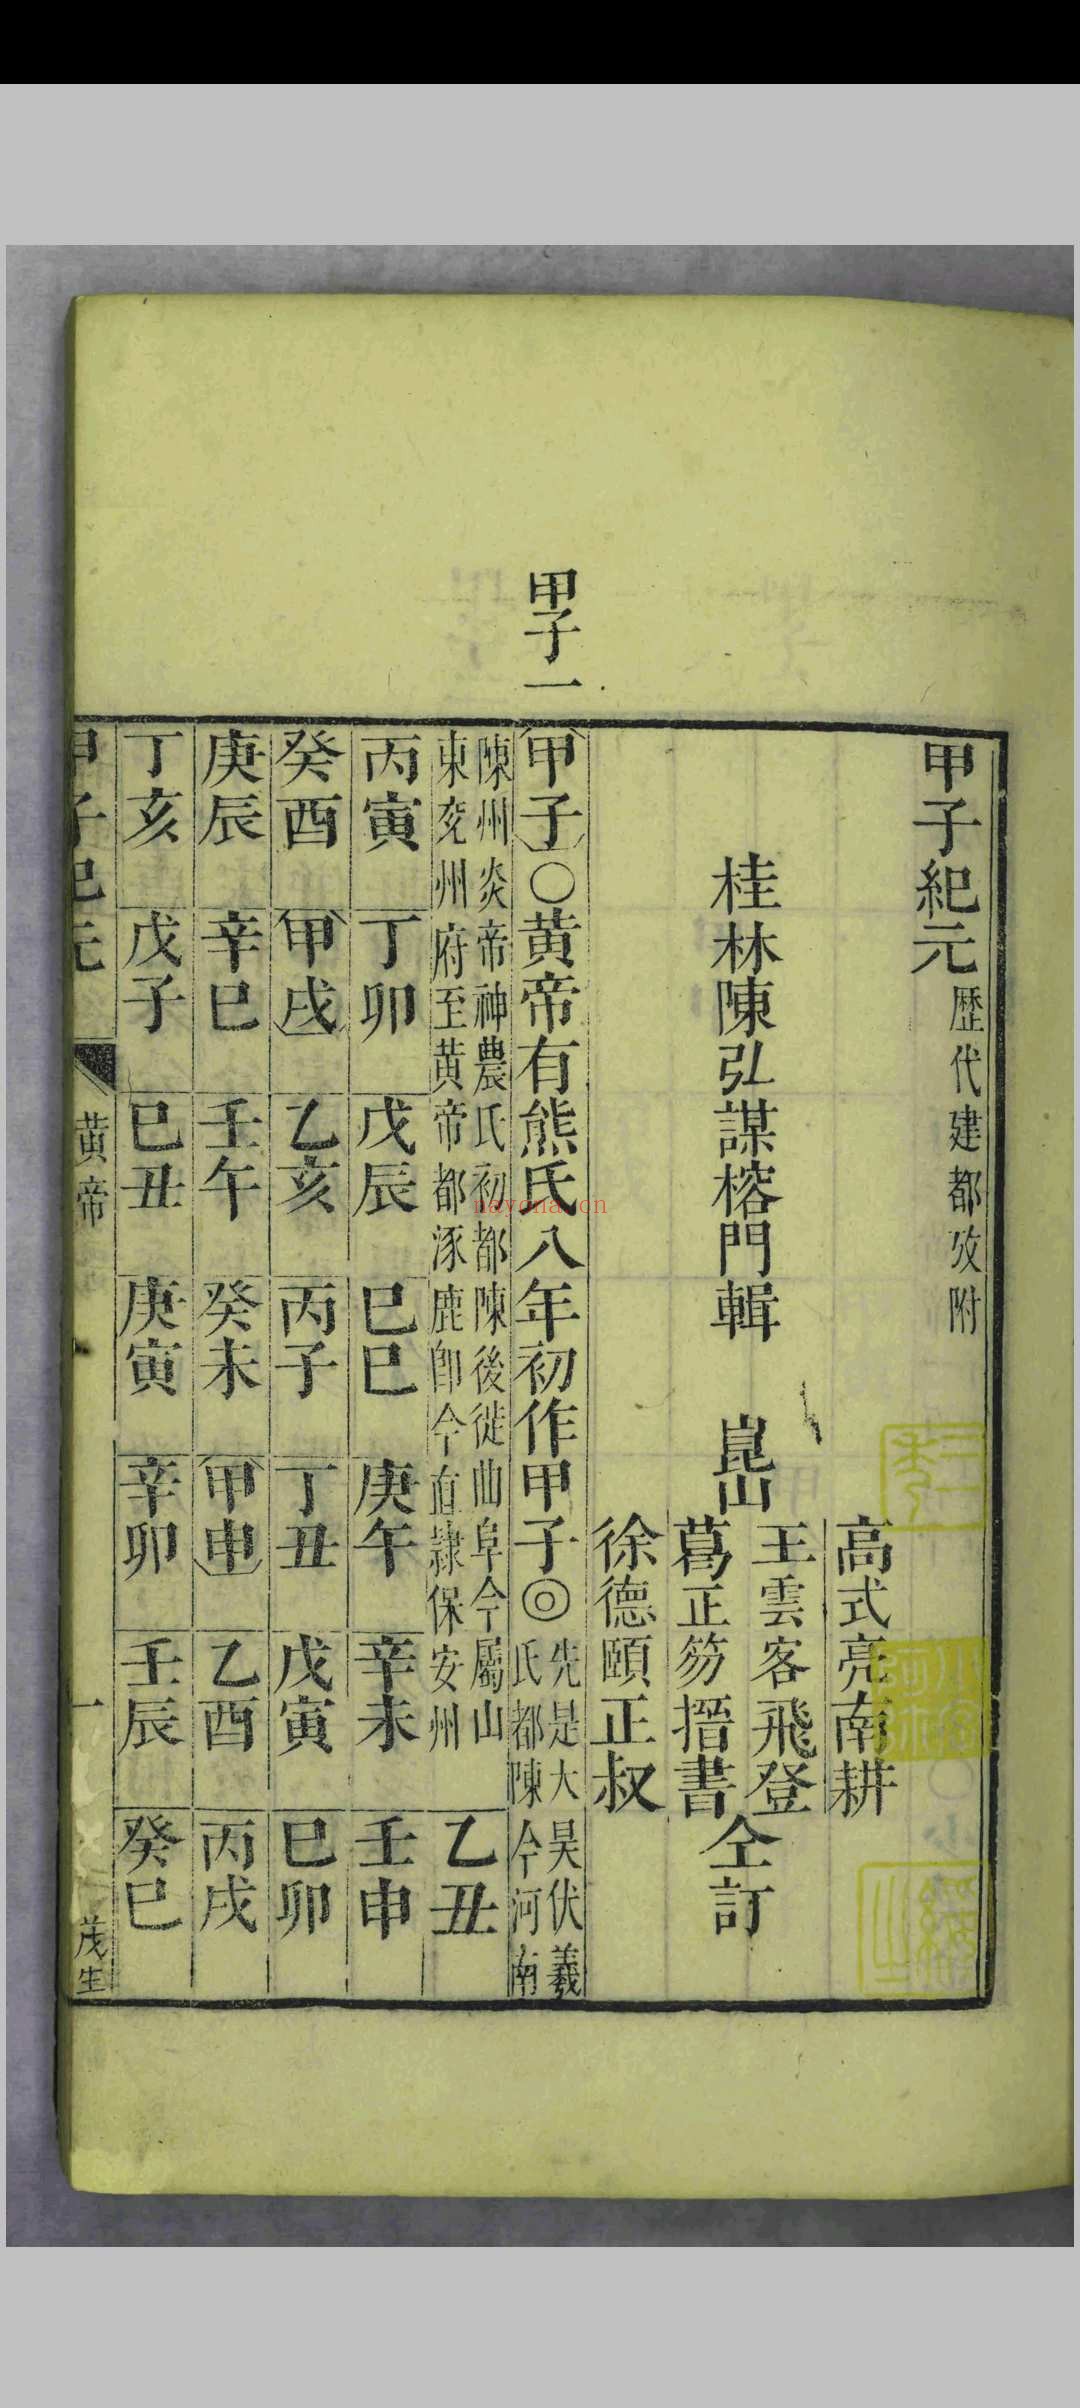 甲子一
甲子紀元歷代建都攷附
高式亮南耕
桂林陳弘謀榕門輯
崑山
王雲客飛登
葛正笏搢書
仝訂
徐德頤正叔
甲子○黃帝有熊氏八年初作甲子◎先是大昊伏羲
氏都陳今河南
陳州炎帝神農氏初都陳後徙曲阜今屬山
東兖州府至黃帝都涿鹿卽今直隷保安州
乙丑
丙寅 丁卯 戊辰 己巳 庚午 辛未 壬申
癸酉 甲戌 乙亥 丙子 丁丑 戊寅 己卯
庚辰 辛巳 壬午 癸未 甲申 乙酉 丙戌
丁亥 戊子 己丑 庚寅 辛卯 壬辰 癸巳
甲子紀元
黃帝
一
茂生
nayona.cn